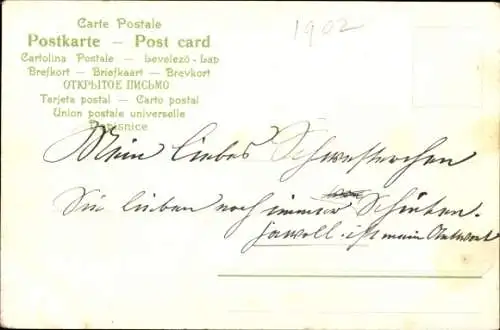 Carte Postale
1902
Postkarte – Post card
Cartolina Postale – Levelező-Lap
Brefkort – Briefkaart – Brevkort
ОТКРЫТОЕ ПИСЬМО
Tarjeta postal – Carto postal
Union postale universelle
Dopisnice
Mein liebes Schwesterchen
Sie lieben noch immer
jawoll. ist mein Antwort